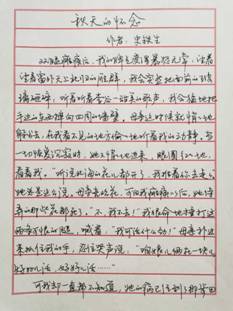 秋天的怀念
作者：史铁生
双腿瘫痪后，我的脾气变得暴怒无常，望着
望着窗外天上北归的雁群，我会突然把面前的玻
璃砸碎，听着听着李谷一甜美的歌声，我会猛地把
手边的东西摔向四周的墙壁，母亲这时候就悄悄地
躲出去，在我看不见的地方偷偷地听着我的动静，当
一切恢复沉寂时，她又悄悄地进来，眼圈红红的，
看着我，“听说北海的花儿都开了，我推着你去走走”
她总是这么说，母亲喜欢花，可自从我瘫痪以后，她侍
弄的那些花都死了，“不，我不去！”我狠命地捶打这
两条可恨的腿，喊着，“我可活什么劲！”母亲扑过
来抓住我的手，忍住哭声说，“咱娘儿俩在一块儿，
好好儿活，好好儿活……”
可我却一直都不知道，她的病已经到了那步田